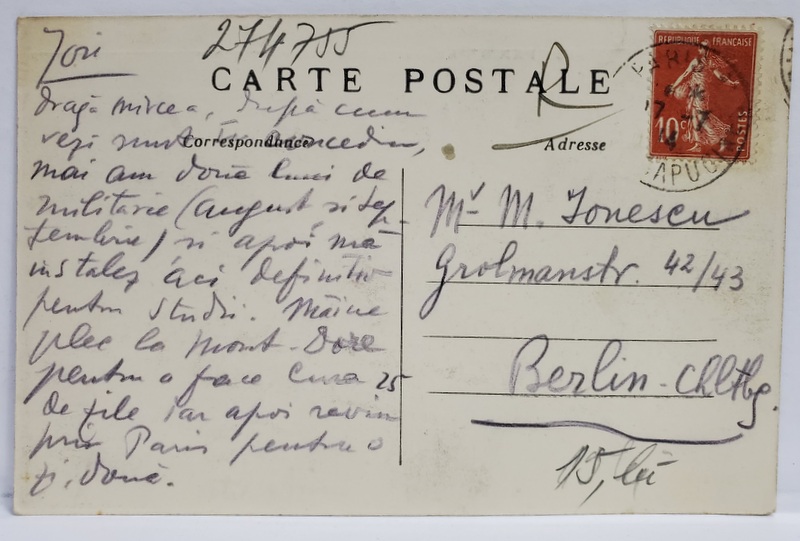 Joi
274755
CARTE POSTALE
R
Correspondance
Adresse
REPUBLIQUE FRANÇAISE
10c
POSTES
PARIS
CAPUCI
dragă Mircea, după cum
vezi sunt în concediu,
mai am două luni de
militărie (august si sep-
tembrie) si apoi mă
instalez aci definitiv
pentru studii. Mâine
plec la Mont-Dore
pentru a face cura 25
de zile iar apoi revin
prin Paris pentru o
zi, două.
Mr M. Ionescu
Grolmanstr. 42/43
Berlin-Chltbg.
15, lei